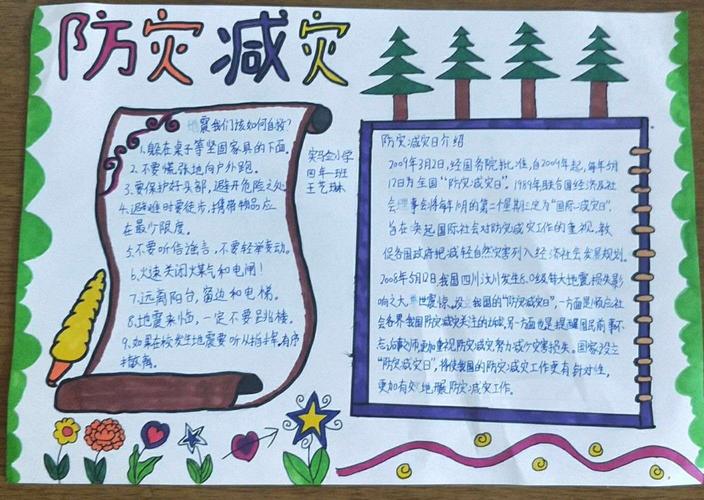 防灾减灾
地震我们该如何自救?
1.躲在桌子等坚固家具的下面。
2.不要慌张地向户外跑。
3.要保护好头部,避开危险之处
4.避难时要徒步,携带物品应
在最少限度。
5.不要听信谣言,不要轻举妄动。
6.火速关闭煤气和电闸!
7.远离阳台,窗边和电梯。
8.地震来临,一定不要
9.如果在校发生地震要听从指挥,有序
撤离。
实马仝小学
四年一班
王艺琳
防灾减灾日介绍
2009年3月2日,经国务院批准,自2009年起,每年5月
12日为全国“防灾减灾日”。1989年联合国经济及社
会理事会将每年10月的第二个星期三定为“国际减灾日”。
旨在唤起国际社会对防灾减灾工作的重视,敦
促各国政府把减轻自然灾害列入经济社会发展规划。
2008年5月12日,我国四川汶川发生8.0级特大地震,损失影
响之大,世震惊。设立我国的“防灾减灾日”,一方面是顺应社
会各界我国防灾减灾关注的,另一方面也是提醒国民前事不
忘,后事师,更加重视防灾减灾,努力减少灾害损失。国家设立
“防灾减灾日”,将使我国的防灾减灾工作更有针对性,
更加有效地展防灾减灾工作。